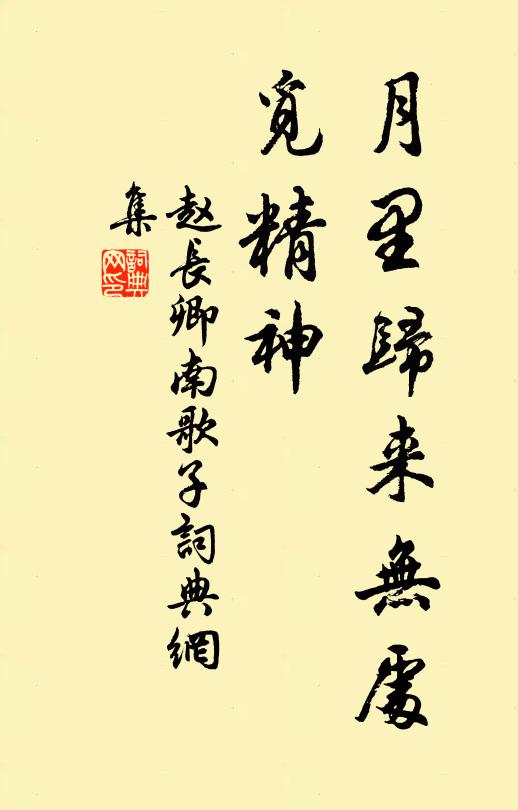 月里歸来無處
覓精神
赵長卿南歌子詞典網
集
詞典
网印